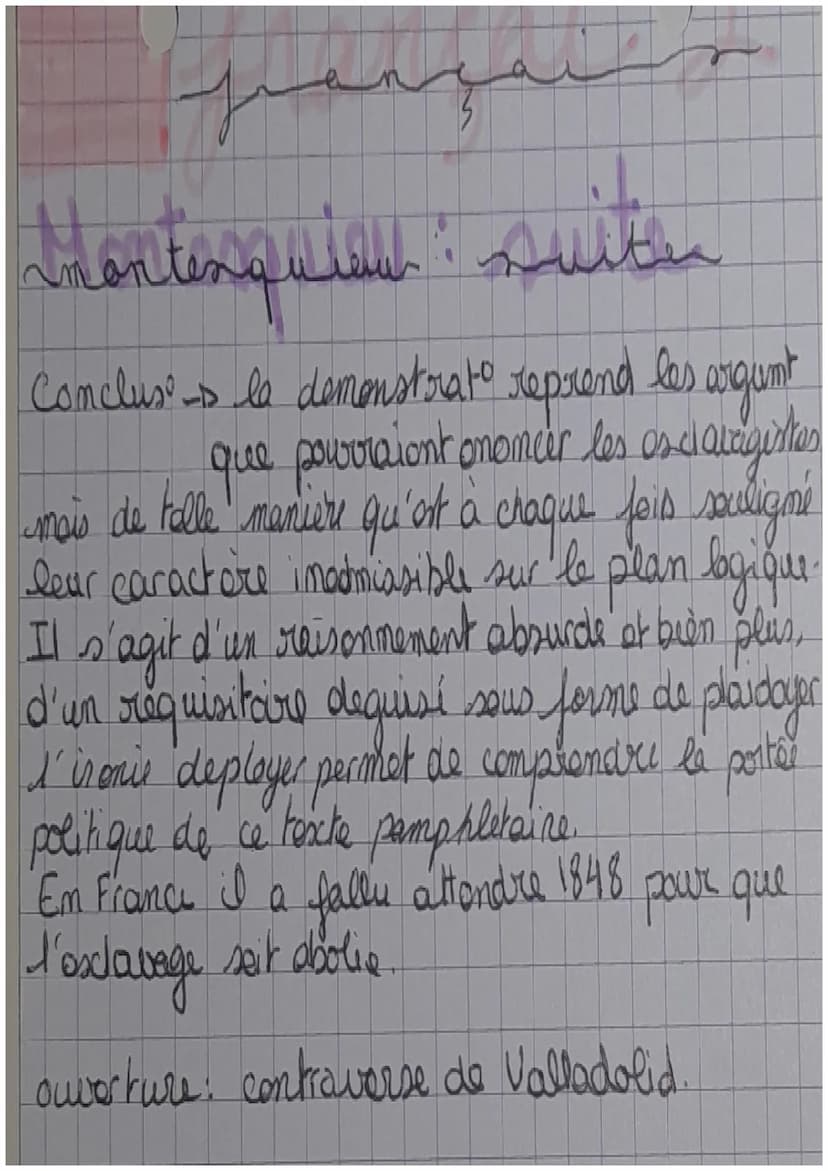 français
Montesquieu : suite
Conclus° → la demonstrat° reprend les argumt
que pourraient enoncer les esclavagistes
mais de telle manière qu'est à chaque fois souligné
leur caractère inadmissible sur le plan logique.
Il s'agit d'un raisonnement absurde et bien plus,
d'un réquisitoire deguisé sous forme de plaidoyer
l'ironie deployer permet de comprendre la portée
politique de ce texte pamphletaire.
En France il a fallu attendre 1848 pour que
l'esclavage soit abolie.
ouverture : contraverse de Valladolid.